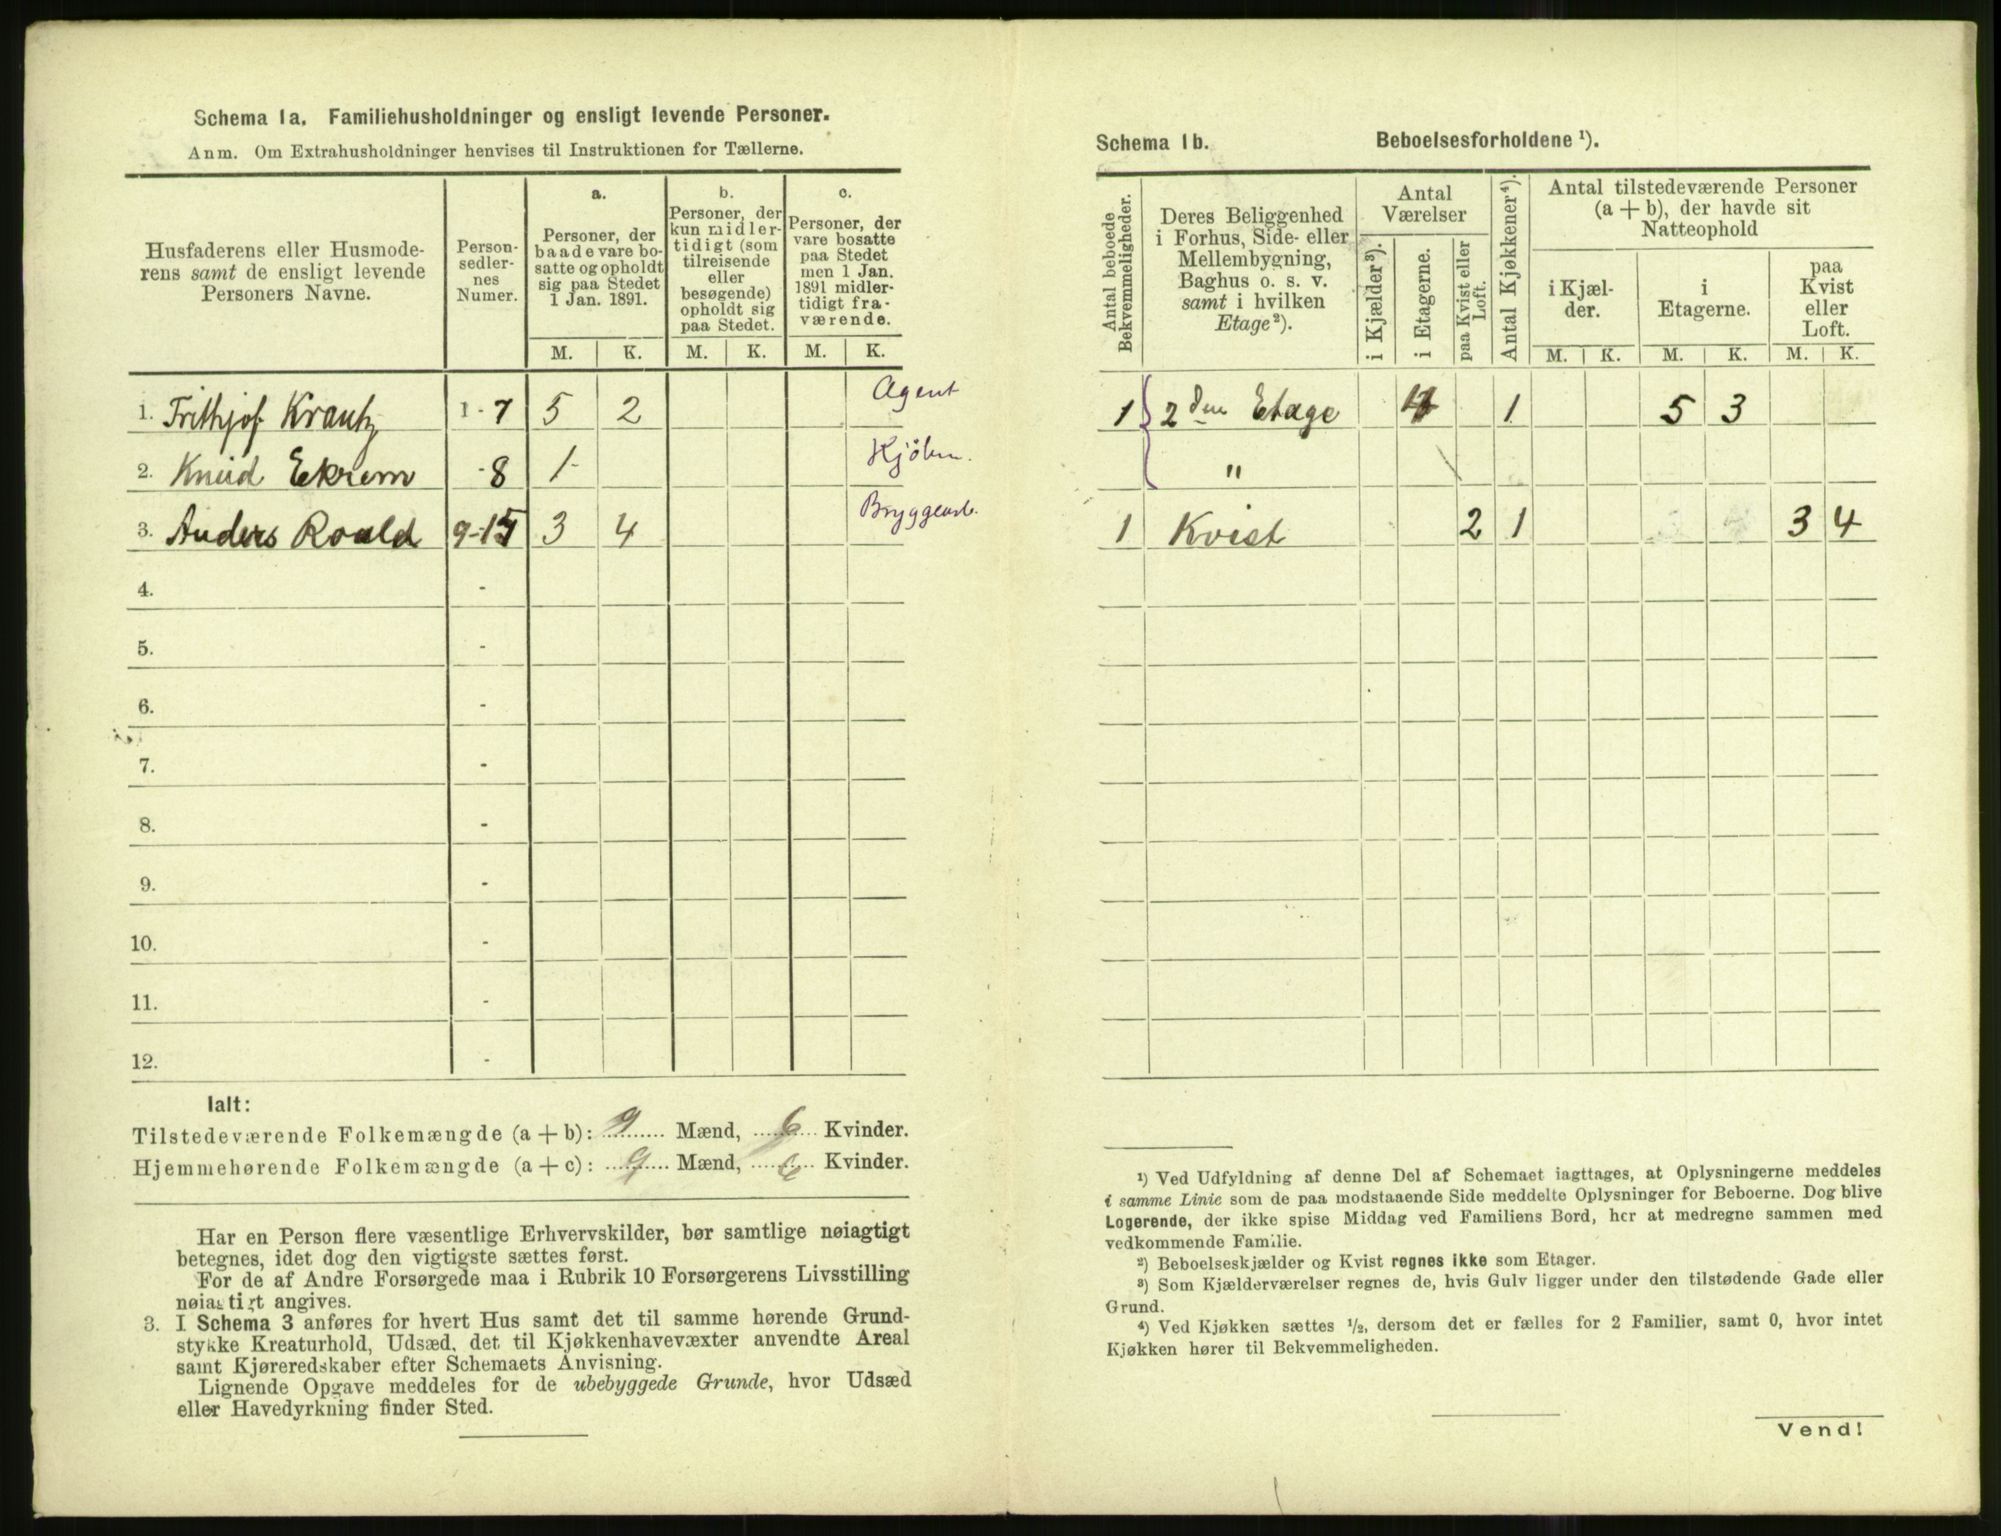 Schema 1a. Familiehusholdninger og ensligt levende Personer.
Anm. Om Extrahusholdninger henvises til Instruktionen for Tællerne.
Husfaderens eller Husmode-
rens samt de ensligt levende
Personers Navne.
Person-
sedler-
nes
Numer.
a.
Personer, der
baade vare bo-
satte og opholdt
sig paa Stedet
1 Jan. 1891.
b.
Personer, der
kun midler-
tidigt (som
tilreisende
eller
besøgende)
opholdt sig
paa Stedet.
c.
Personer, der
vare bosatte
paa Stedet
men 1 Jan.
1891 midler-
tidigt fra-
værende.
M. K. M. K. M. K.
1. Frithjof Krantz 1-7 5 2 Agent
2. Knud Ekrem -8 1- Kjøbm.
3. Anders Roald 9-15 3 4 Bryggearb.
4. -
5. -
6. -
7. -
8. -
9. -
10. -
11. -
12. -
Ialt:
Tilstedeværende Folkemængde (a + b): 9 Mænd, 6 Kvinder.
Hjemmehørende Folkemængde (a + c): 9 Mænd, 6 Kvinder.
Har en Person flere væsentlige Erhvervskilder, bør samtlige nøiagtigt
betegnes, idet dog den vigtigste sættes først.
For de af Andre Forsørgede maa i Rubrik 10 Forsørgerens Livsstilling
nøiagtigt angives.
3. I Schema 3 anføres for hvert Hus samt det til samme hørende Grund-
stykke Kreaturhold, Udsæd, det til Kjøkkenhavevæxter anvendte Areal
samt Kjøreredskaber efter Schemaets Anvisning.
Lignende Opgave meddeles for de ubebyggede Grunde, hvor Udsæd
eller Havedyrkning finder Sted.
Schema 1b. Beboelsesforholdene ¹).
Antal beboede
Bekvemmeligheder.
Deres Beliggenhed
i Forhus, Side- eller
Mellembygning,
Baghus o. s. v.
samt i hvilken
Etage²).
Antal
Værelser
i Kjælder³).
i Etagerne.
paa Kvist eller
Loft.
Antal Kjøkkener⁴).
Antal tilstedeværende Personer
(a + b), der havde sit
Natteophold
i Kjæl-
der.
i
Etagerne.
paa
Kvist
eller
Loft.
M. K. M. K. M. K.
1 2den Etage 1 5 3
"
1 Kvist 2 1 3 4
¹) Ved Udfyldning af denne Del af Schemaet iagttages, at Oplysningerne meddeles
i samme Linie som de paa modstaaende Side meddelte Oplysninger for Beboerne. Dog blive
Logerende, der ikke spise Middag ved Familiens Bord, her at medregne sammen med
vedkommende Familie.
²) Beboelseskjælder og Kvist regnes ikke som Etager.
³) Som Kjælderværelser regnes de, hvis Gulv ligger under den tilstødende Gade eller
Grund.
⁴) Ved Kjøkken sættes ½, dersom det er fælles for 2 Familier, samt 0, hvor intet
Kjøkken hører til Bekvemmeligheden.
Vend!